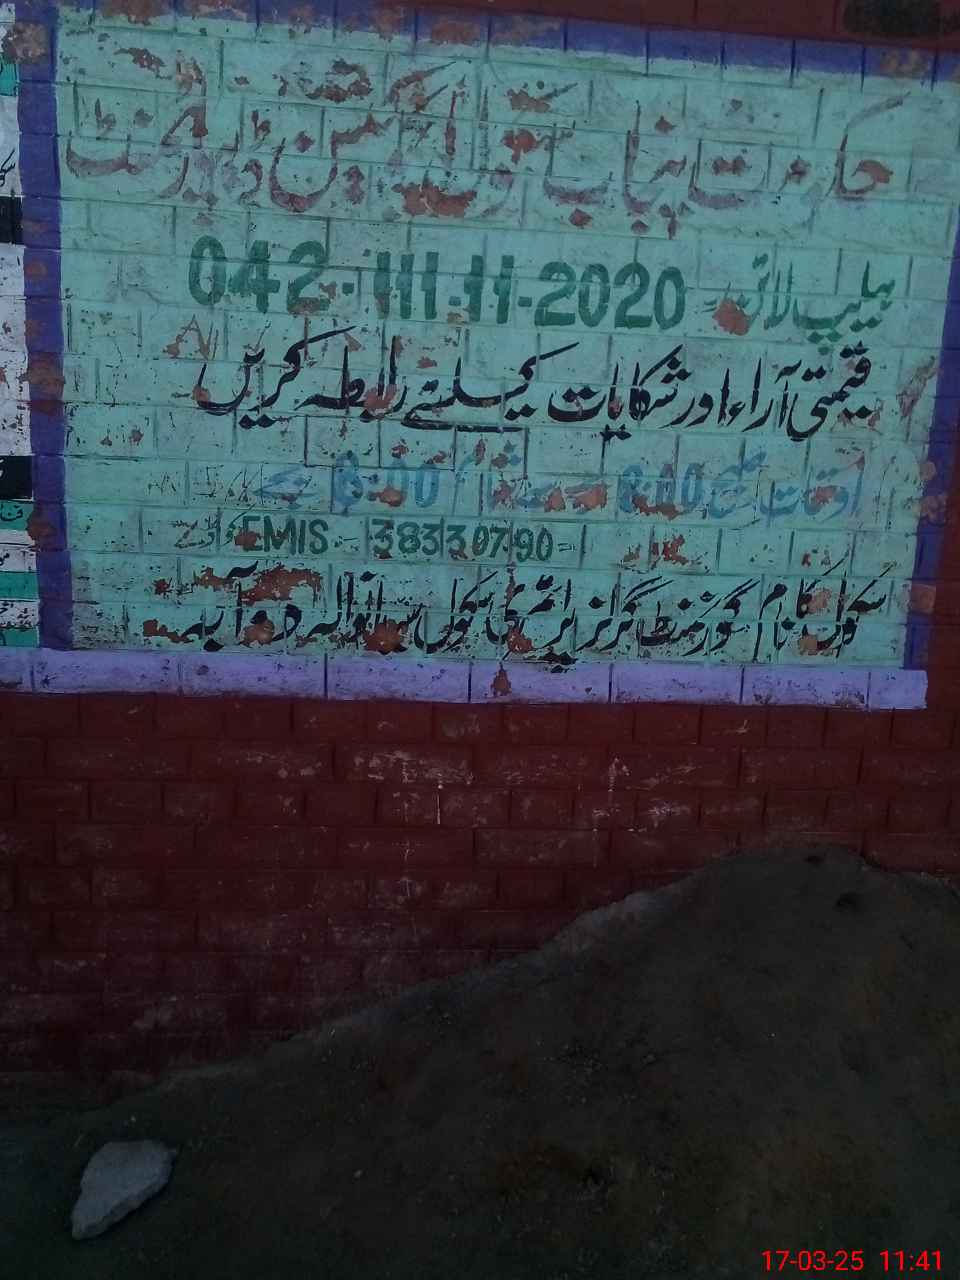 حکومت پنجاب سکول ایجوکیشن ڈیپارٹمنٹ
ہیلپ لائن 042-111-11-2020
قیمتی آراء اور شکایات کیلئے رابطہ کریں
اوقات صبح 8:00 بجے سے شام 8:00 بجے
EMIS 38330790
سکول کا نام گورنمنٹ گرلز پرائمری سکول
17-03-25 11:41